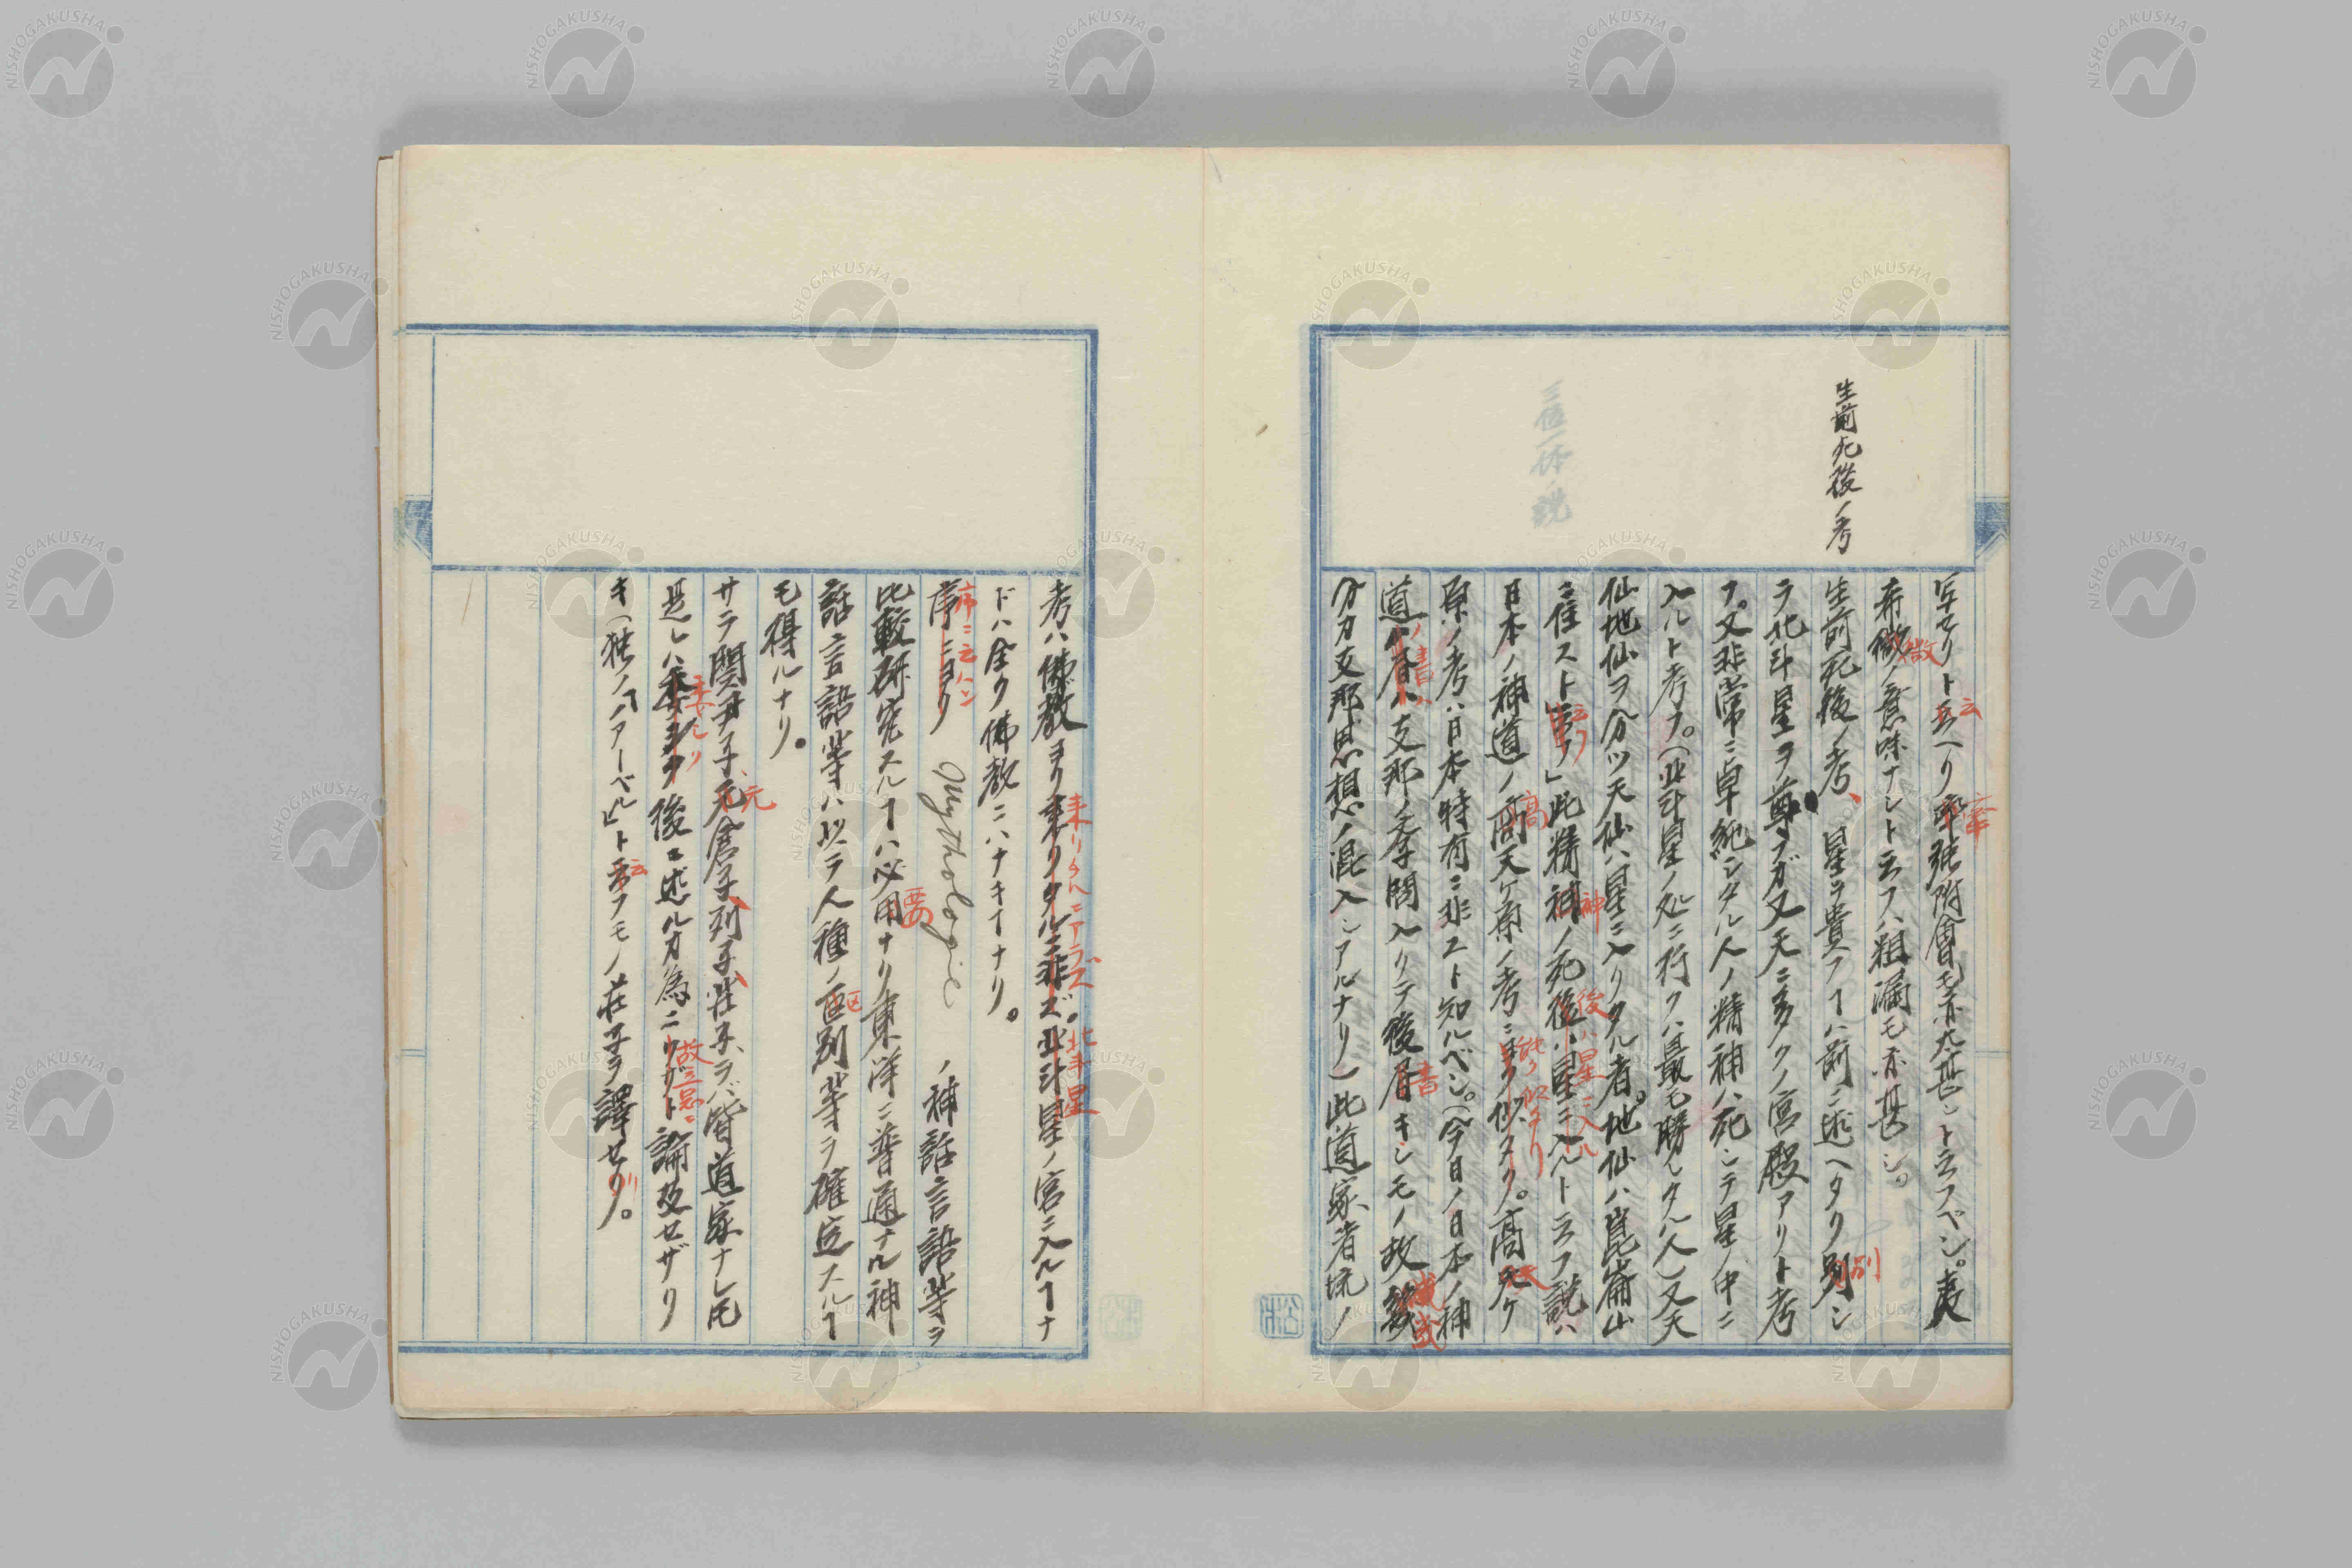 生前死後ノ考
写セリト云ヘリ牽強附會モ亦太甚シト云フベシ。夷
希微ノ意味ナシト云フハ粗漏モ亦甚シ。
生前死後ノ考、星ヲ貴フヿハ前ニ述ヘタリ別シ
テ北斗星ヲ尊ブガ又天ニ多クノ宮殿アリト考
フ。又非常ニ卓絶シタル人ノ精神ハ死シテ星ノ中ニ
入ルト考フ。(北斗星ノ処ニ行クハ最モ勝レタル人)又天
仙地仙ヲ分ツ天仙ハ星ニ入リタル者。地仙ハ崑崙山
ニ住スト云フ」此精神ノ死後ハ星ニ入ルト云フ説ハ
日本ノ神道ノ高天ケ原ノ考ニ能ク似タリ。高天ケ
原ノ考ハ日本特有ニ非ズト知ルベシ。(今日ノ日本ノ神
道ノ書ハ支那ノ学問入リテ後書キシモノ故或
分カ支那思想ノ混入シアルナリ)此道家者流ノ
考ハ佛教ヨリ来リタルニ非ズ。北斗星ノ宮ニ入ルヿナ
ドハ全ク佛教ニハナキヿナリ。
序ニ云ハン Mythologie ノ神話言語等ヲ
比較研究スルヿハ必要ナリ東洋ニ普通ナル神
話言語等ハ以テ人種ノ区別等ヲ確定スルヿ
モ得ルナリ。
サテ関尹子、亢倉子、列子、荘子、ラバ皆道家ナレ𪜈
是レハ 後ニ述ル方為ニ 論及セザリ
キ(独ノ「ノアーベル」ト云フモノ荘子ヲ譯セリ)。
三位一体ノ説
来リタルニアラズ
北斗星
序ニ云ハン
要
区
元
云
微
別
高
神
後ハ星ニ入ル
書
NISHOGAKUSHA